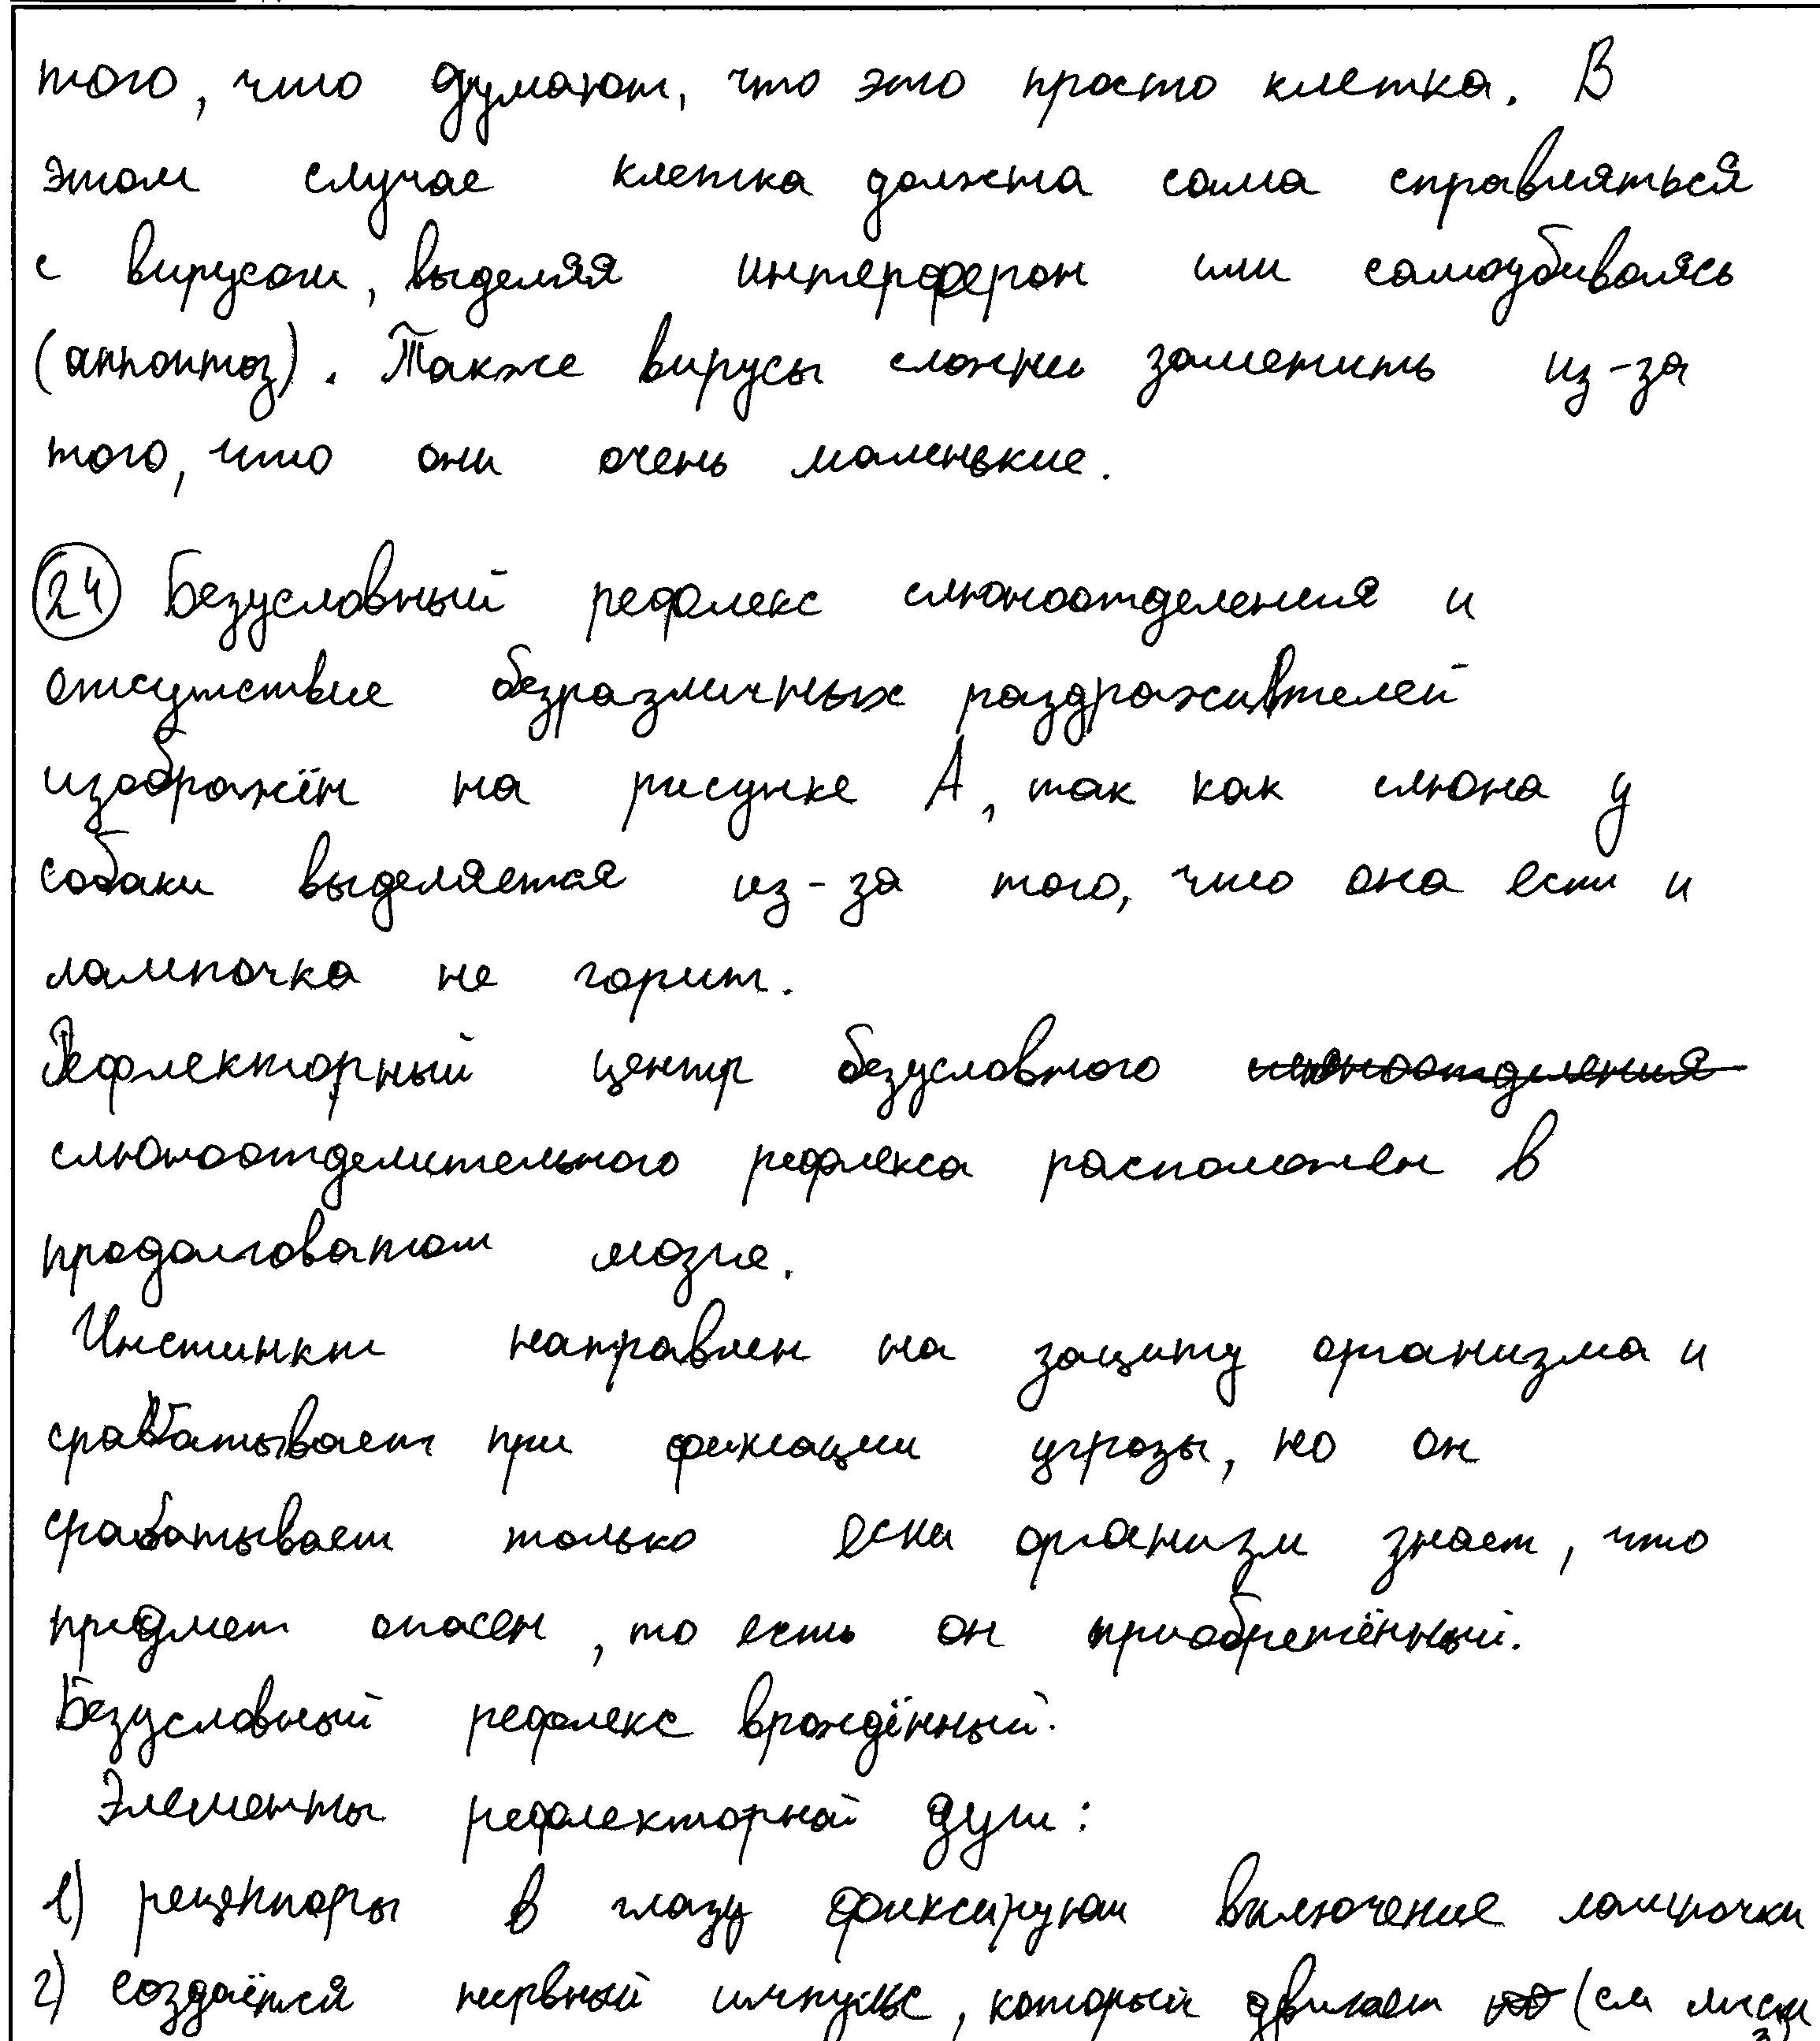 того, что думают, что это просто клетка. В
этом случае клетка должна сама справляться
с вирусом, выделяя интерферон или самоубиваясь
(аппоптоз). Также вирусы сложны заметить из-за
того, что они очень маленькие.
24 Безусловный рефлекс слюноотделения и
отсутствие безразличных раздражителей
изображён на рисунке А, так как слюна у
собаки выделяется из-за того, что она ест и
лампочка не горит.
Рефлекторный центр безусловного слюноотделения
слюноотделительного рефлекса расположен в
продолговатом мозге.
Инстинкт направлен на защиту организма и
срабатывает при фиксации угрозы, но он
срабатывает только если организм знает, что
предмет опасен, то есть он приобретённый.
Безусловный рефлекс врождённый.
Элементы рефлекторной дуги:
1) рецепторы в глазу фиксируют включение лампочки
2) создаётся нервный импульс, который двигает (см лист